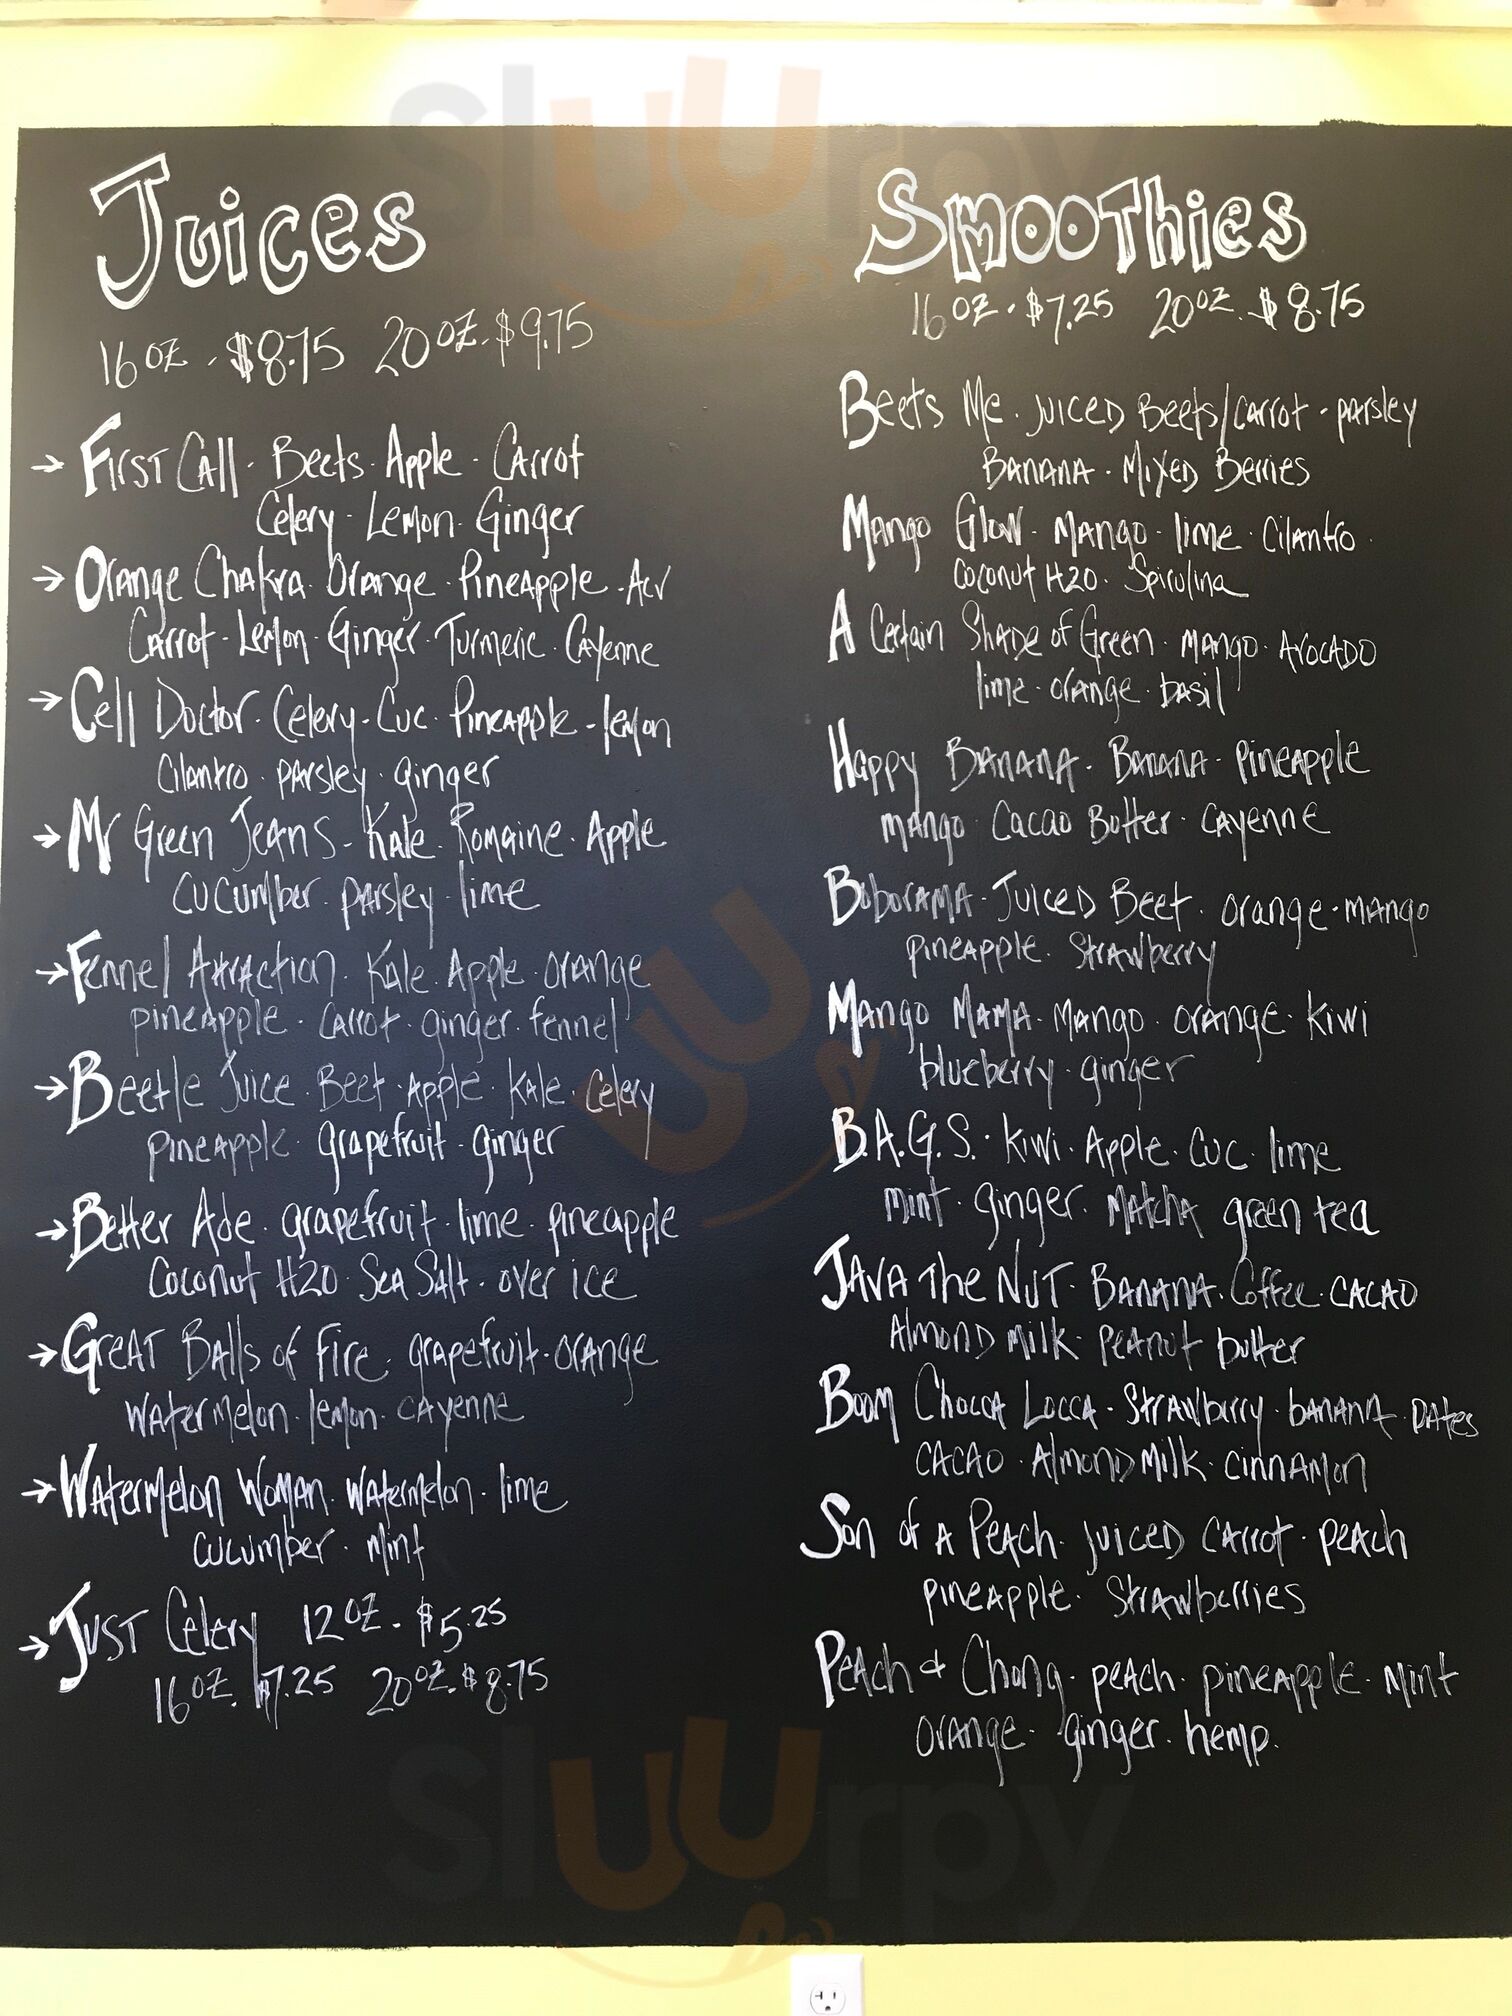 Juices
16 oz. $8.75 20 oz. $9.75
→ First Call · Beets · Apple · Carrot
Celery · Lemon · Ginger
→ Orange Chakra · Orange · Pineapple · Acv
Carrot · Lemon · Ginger · Turmeric · Cayenne
→ Cell Doctor · Celery · Cuc · Pineapple · lemon
Cilantro · parsley · ginger
→ Mr Green Jeans · Kale · Romaine · Apple
Cucumber · parsley · lime
→ Fennel Attraction · Kale · Apple · orange
pineapple · carrot · ginger · fennel
→ Beetle Juice · Beet · Apple · Kale · Celery
pineapple · grapefruit · ginger
→ Better Ade · grapefruit · lime · pineapple
Coconut H2O · Sea Salt · over ice
→ Great Balls of Fire · grapefruit · orange
Watermelon · lemon · cayenne
→ Watermelon Woman · Watermelon · lime
cucumber · mint
→ Just Celery 12 oz. $5.25
16 oz. $7.25 20 oz. $8.75
Smoothies
16 oz. $7.25 20 oz. $8.75
Beets Me · Juiced Beets/Carrot · parsley
Banana · Mixed Berries
Mango Glow · Mango · lime · Cilantro ·
Coconut H2O · Spirulina
A Certain Shade of Green · Mango · Avocado
lime · orange · basil
Happy Banana · Banana · pineapple
mango · Cacao Butter · Cayenne
Boborama · Juiced Beet · orange · mango
pineapple · Strawberry
Mango Mama · Mango · orange · kiwi
blueberry · ginger
B.A.G.S. · kiwi · Apple · Cuc · lime
mint · ginger · Matcha green tea
Java The Nut · Banana · Coffee · cacao
Almond Milk · peanut butter
Boom Chocca Locca · Strawberry · banana · Dates
cacao · Almond Milk · cinnamon
Son of a Peach · juiced carrot · peach
pineapple · Strawberries
Peach & Chong · peach · pineapple · mint
orange · ginger · hemp.
sluurpy
sluurpy